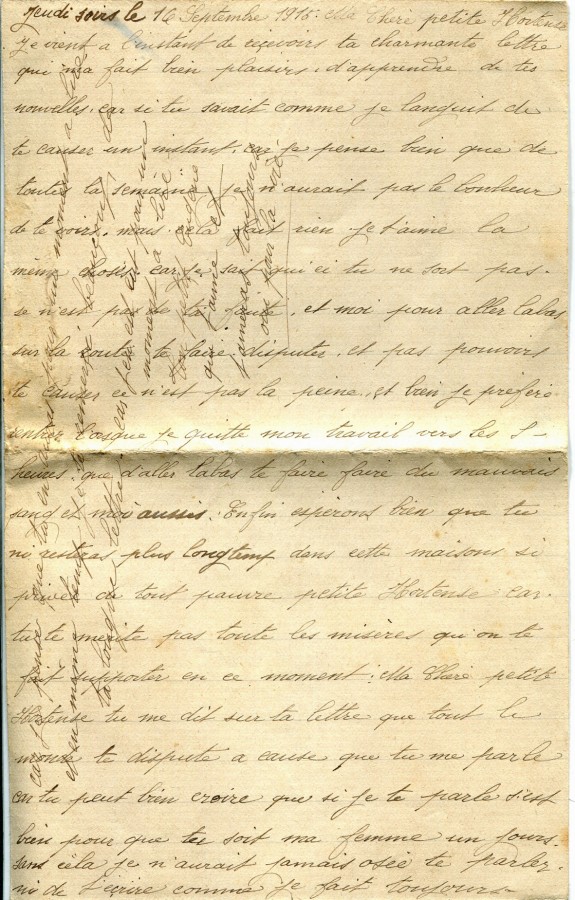 Jeudi soirs le 16 Septembre 1915: Ma Chère petite Hortense
Je vient a l'instant de reçevoirs ta charmante lettre
qui ma fait bien plaisirs, d'apprendre de tes
nouvelles, car si tu savait comme je languit de
te causer un instant, car je pense bien que de
toutes la semaine je n'aurait pas le bonheur
de te voirs, mais cela fait rien je t'aime la
même chose, car je sait qui ci tu ne sort pas
se n'est pas de ta faute, et moi pour aller labas
sur la route te faire disputer, et pas pouvoirs
te causer ce n'est pas la peine, et bien je préfère
rentrer lorsque je quitte mon travail vers les
heures, que d'aller labas te faire faire du mauvais
sand et moi aussis. Enfin esperons bien que tu
ni resteras plus longtemp dans cette maisons si
privée de tout pauvre petite Hortense car
tu te merite pas toute les misères qu'on te
fait supporter en ce moment: Ma Chère petite
Hortense tu me dit sur ta lettre que tout le
monde te dispute a cause que tu me parle
car tu peut bien croire que si je te parle s'est
bien pour que tu soit ma femme un jours
sens cela je n'aurait jamais osée te parler
ni de t'écrire comme je fait toujours
car je pense que tu en auras pour un moment a lire
et en même temps
ta longue lettre, car j'en est eut pour un
moment a lire
ton petit
qui t'aime et
t'aimeras toujours
oui pour la vie